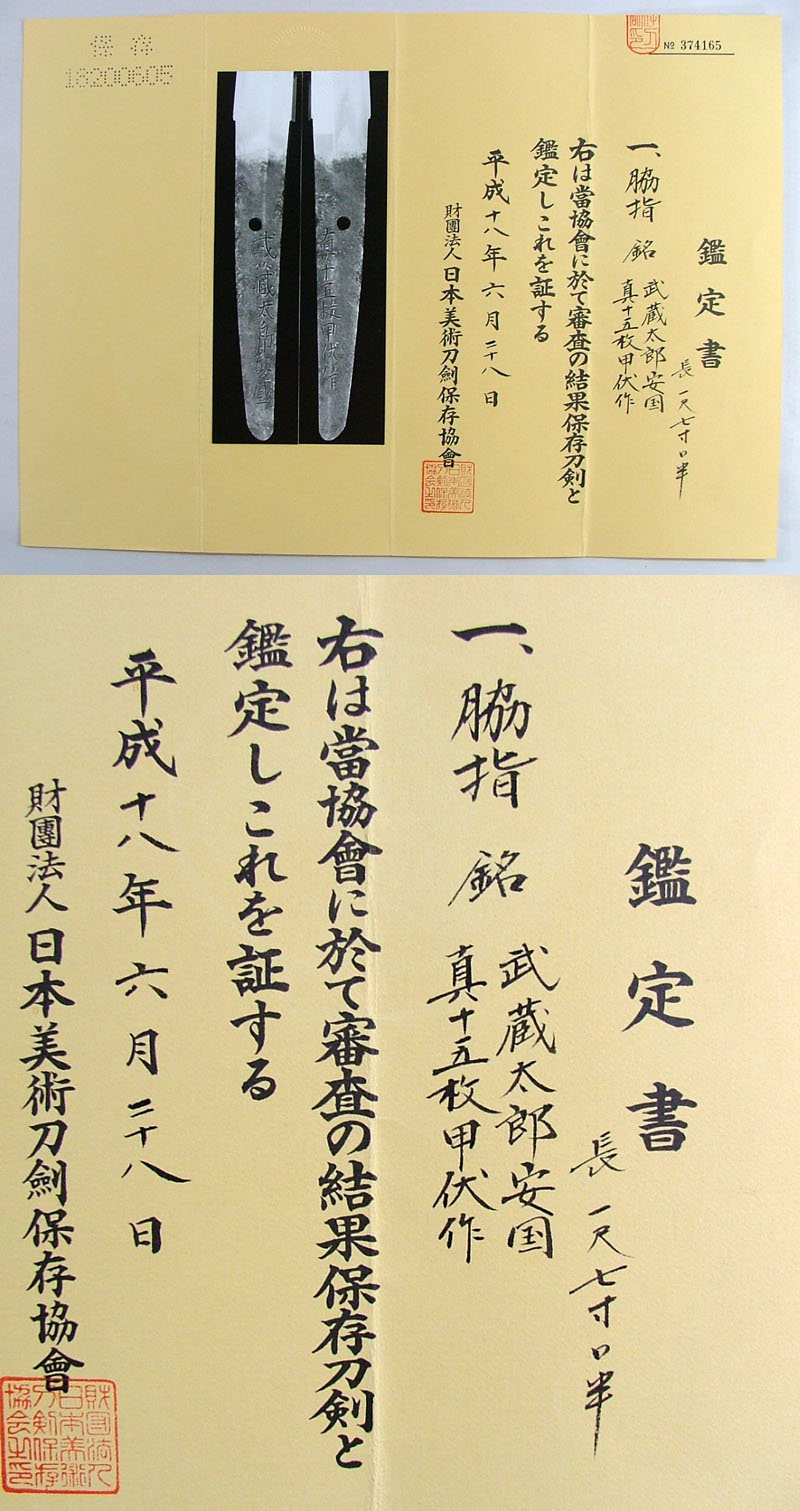 保存
18200605
№ 374165
鑑定書
長 一尺七寸口半
一、脇指 銘 武蔵太郎安国
真十五枚甲伏作
右は當協會に於て審査の結果保存刀剣と
鑑定しこれを証する
平成十八年六月二十八日
財團法人日本美術刀劍保存協會
武蔵太郎安國
真十五枚甲伏作
鑑定書
長 一尺七寸口半
一、脇指 銘 武蔵太郎安国
真十五枚甲伏作
右は當協會に於て審査の結果保存刀剣と
鑑定しこれを証する
平成十八年六月二十八日
財團法人日本美術刀劍保存協會
財團法人
日本美術
刀剣保存
協会之印